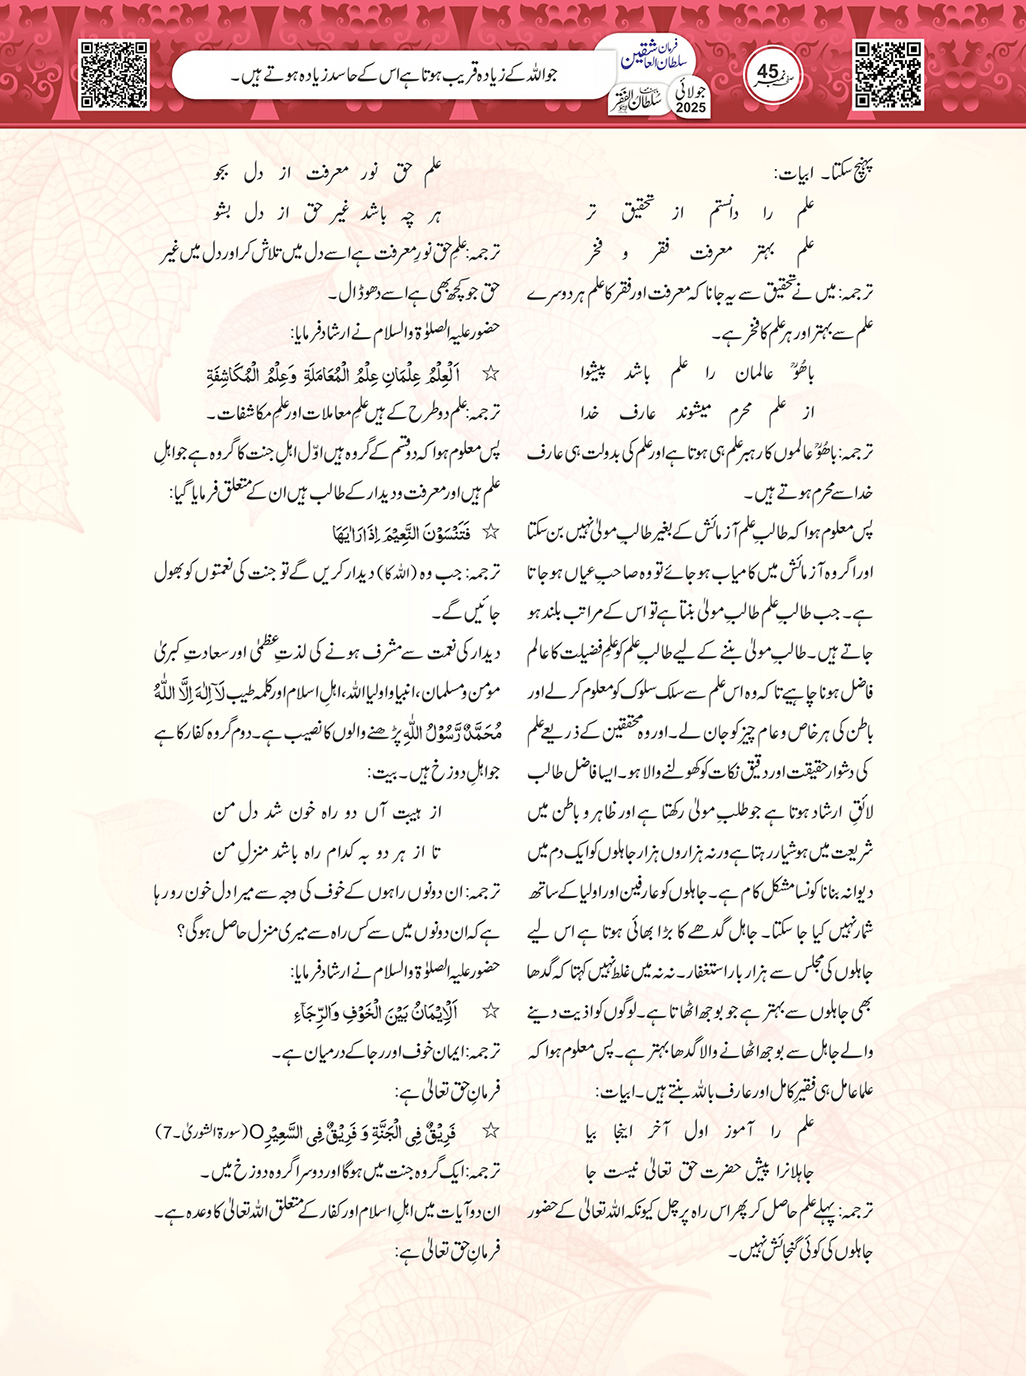 جو اللہ کے زیادہ قریب ہوتا ہے اس کے حاسد زیادہ ہوتے ہیں۔
فرمان سلطان العاشقین
سلطان الفقر
جولائی
2025
صفحہ نمبر 45
پہنچ سکتا۔ ابیات:
علم را دانستم از تحقیق تر
علم بہتر معرفت فقر و فخر
ترجمہ: میں نے تحقیق سے یہ جانا کہ معرفت اور فقر کا علم ہر دوسرے
علم سے بہتر اور ہر علم کا فخر ہے۔
باھُوؒ عالمان را علم باشد پیشوا
از علم محرم میشوند عارف خدا
ترجمہ: باھُوؒ عالموں کا رہبر علم ہی ہوتا ہے اور علم کی بدولت ہی عارف
خدا سے محرم ہوتے ہیں۔
پس معلوم ہوا کہ طالبِ علم آزمائش کے بغیر طالبِ مولیٰ نہیں بن سکتا
اور اگر وہ آزمائش میں کامیاب ہو جائے تو وہ صاحبِ عیاں ہو جاتا
ہے۔ جب طالبِ علم طالبِ مولیٰ بنتا ہے تو اس کے مراتب بلند ہو
جاتے ہیں۔ طالبِ مولیٰ بننے کے لیے طالبِ علم کو علمِ فضیلت کا عالم
فاضل ہونا چاہیے تاکہ وہ اس علم سے سلک سلوک کو معلوم کر لے اور
باطن کی ہر خاص و عام چیز کو جان لے۔ اور وہ محققین کے ذریعے علم
کی دشوار حقیقت اور دقیق نکات کو کھولنے والا ہو۔ ایسا فاضل طالب
لائقِ ارشاد ہوتا ہے جو طلبِ مولیٰ رکھتا ہے اور ظاہر و باطن میں
شریعت میں ہوشیار رہتا ہے ورنہ ہزاروں ہزار جاہلوں کو ایک دم میں
دیوانہ بنانا کونسا مشکل کام ہے۔ جاہلوں کو عارفین اور اولیا کے ساتھ
شمار نہیں کیا جا سکتا۔ جاہل گدھے کا بڑا بھائی ہوتا ہے اس لیے
جاہلوں کی مجلس سے ہزار بار استغفار۔ نہ نہ میں غلط نہیں کہتا کہ گدھا
بھی جاہلوں سے بہتر ہے جو بوجھ اٹھاتا ہے۔ لوگوں کو اذیت دینے
والے جاہل سے بوجھ اٹھانے والا گدھا بہتر ہے۔ پس معلوم ہوا کہ
علما عامل ہی فقیرِ کامل اور عارف باللہ بنتے ہیں۔ ابیات:
علم را آموز اول آخر اینجا بیا
جاہلانرا پیش حضرت حق تعالیٰ نیست جا
ترجمہ: پہلے علم حاصل کر پھر اس راہ پر چل کیونکہ اللہ تعالیٰ کے حضور
جاہلوں کی کوئی گنجائش نہیں۔
علم حق نور معرفت از دل بجو
ہر چہ باشد غیر حق از دل بشو
ترجمہ: علمِ حق نورِ معرفت ہے اسے دل میں تلاش کر اور دل میں غیر
حق جو کچھ بھی ہے اسے دھو ڈال۔
حضور علیہ الصلوٰۃ والسلام نے ارشاد فرمایا:
☆ اَلْعِلْمُ عِلْمَانِ عِلْمُ الْمُعَامَلَةِ وَعِلْمُ الْمُكَاشِفَةِ
ترجمہ: علم دو طرح کے ہیں علمِ معاملات اور علمِ مکاشفات۔
پس معلوم ہوا کہ دو قسم کے گروہ ہیں اوّل اہلِ جنت کا گروہ ہے جو اہلِ
علم ہیں اور معرفت و دیدار کے طالب ہیں ان کے متعلق فرمایا گیا:
☆ فَتَنْسَوْنَ النَّعِيْمَ اِذَا رَاٰيَهَا
ترجمہ: جب وہ (اللہ کا) دیدار کریں گے تو جنت کی نعمتوں کو بھول
جائیں گے۔
دیدار کی نعمت سے مشرف ہونے کی لذتِ عظمیٰ اور سعادتِ کبریٰ
مؤمن و مسلمان، انبیا و اولیا اللہ، اہلِ اسلام اور کلمہ طیب لَآ اِلٰهَ اِلَّا اللّٰهُ
مُحَمَّدٌ رَّسُوْلُ اللّٰهِ پڑھنے والوں کا نصیب ہے۔ دوم گروہ کفار کا ہے
جو اہلِ دوزخ ہیں۔ بیت:
از ہیبت آں دو راہ خون شد دل من
تا از ہر دو بہ کدام راہ باشد منزلِ من
ترجمہ: ان دونوں راہوں کے خوف کی وجہ سے میرا دل خون رو رہا
ہے کہ ان دونوں میں سے کس راہ سے میری منزل حاصل ہو گی؟
حضور علیہ الصلوٰۃ والسلام نے ارشاد فرمایا:
☆ اَلْاِيْمَانُ بَيْنَ الْخَوْفِ وَالرِّجَآءِ
ترجمہ: ایمان خوف اور رجا کے درمیان ہے۔
فرمانِ حق تعالیٰ ہے:
☆ فَرِيْقٌ فِى الْجَنَّةِ وَ فَرِيْقٌ فِى السَّعِيْرِO (سورۃ الشوریٰ۔7)
ترجمہ: ایک گروہ جنت میں ہوگا اور دوسرا گروہ دوزخ میں۔
ان دو آیات میں اہلِ اسلام اور کفار کے متعلق اللہ تعالیٰ کا وعدہ ہے۔
فرمانِ حق تعالیٰ ہے: